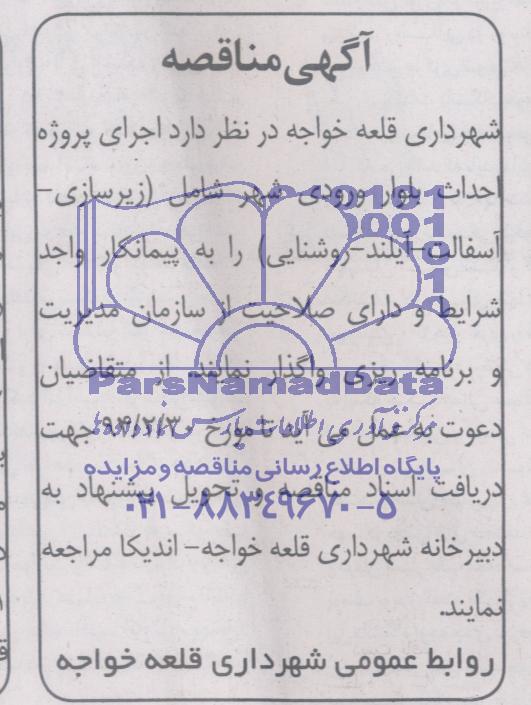 آگهی مناقصه
شهرداری قلعه خواجه در نظر دارد اجرای پروژه
احداث بلوار ورودی شهر شامل (زیرسازی-
آسفالت-آیلند-روشنایی) را به پیمانکار واجد
شرایط و دارای صلاحیت از سازمان مدیریت
و برنامه ریزی واگذار نمائند. از متقاضیان
ParsNamadData
دعوت به عمل می آید تا مورخ ۹۴/۲/۳۰ جهت
پایگاه اطلاع رسانی مناقصه و مزایده
دریافت اسناد مناقصه و تحویل پیشنهاد به
۰۲۱-۸۸۳۴۹۶۷۰-۵
دبیرخانه شهرداری قلعه خواجه- اندیکا مراجعه
نمایند.
روابط عمومی شهرداری قلعه خواجه